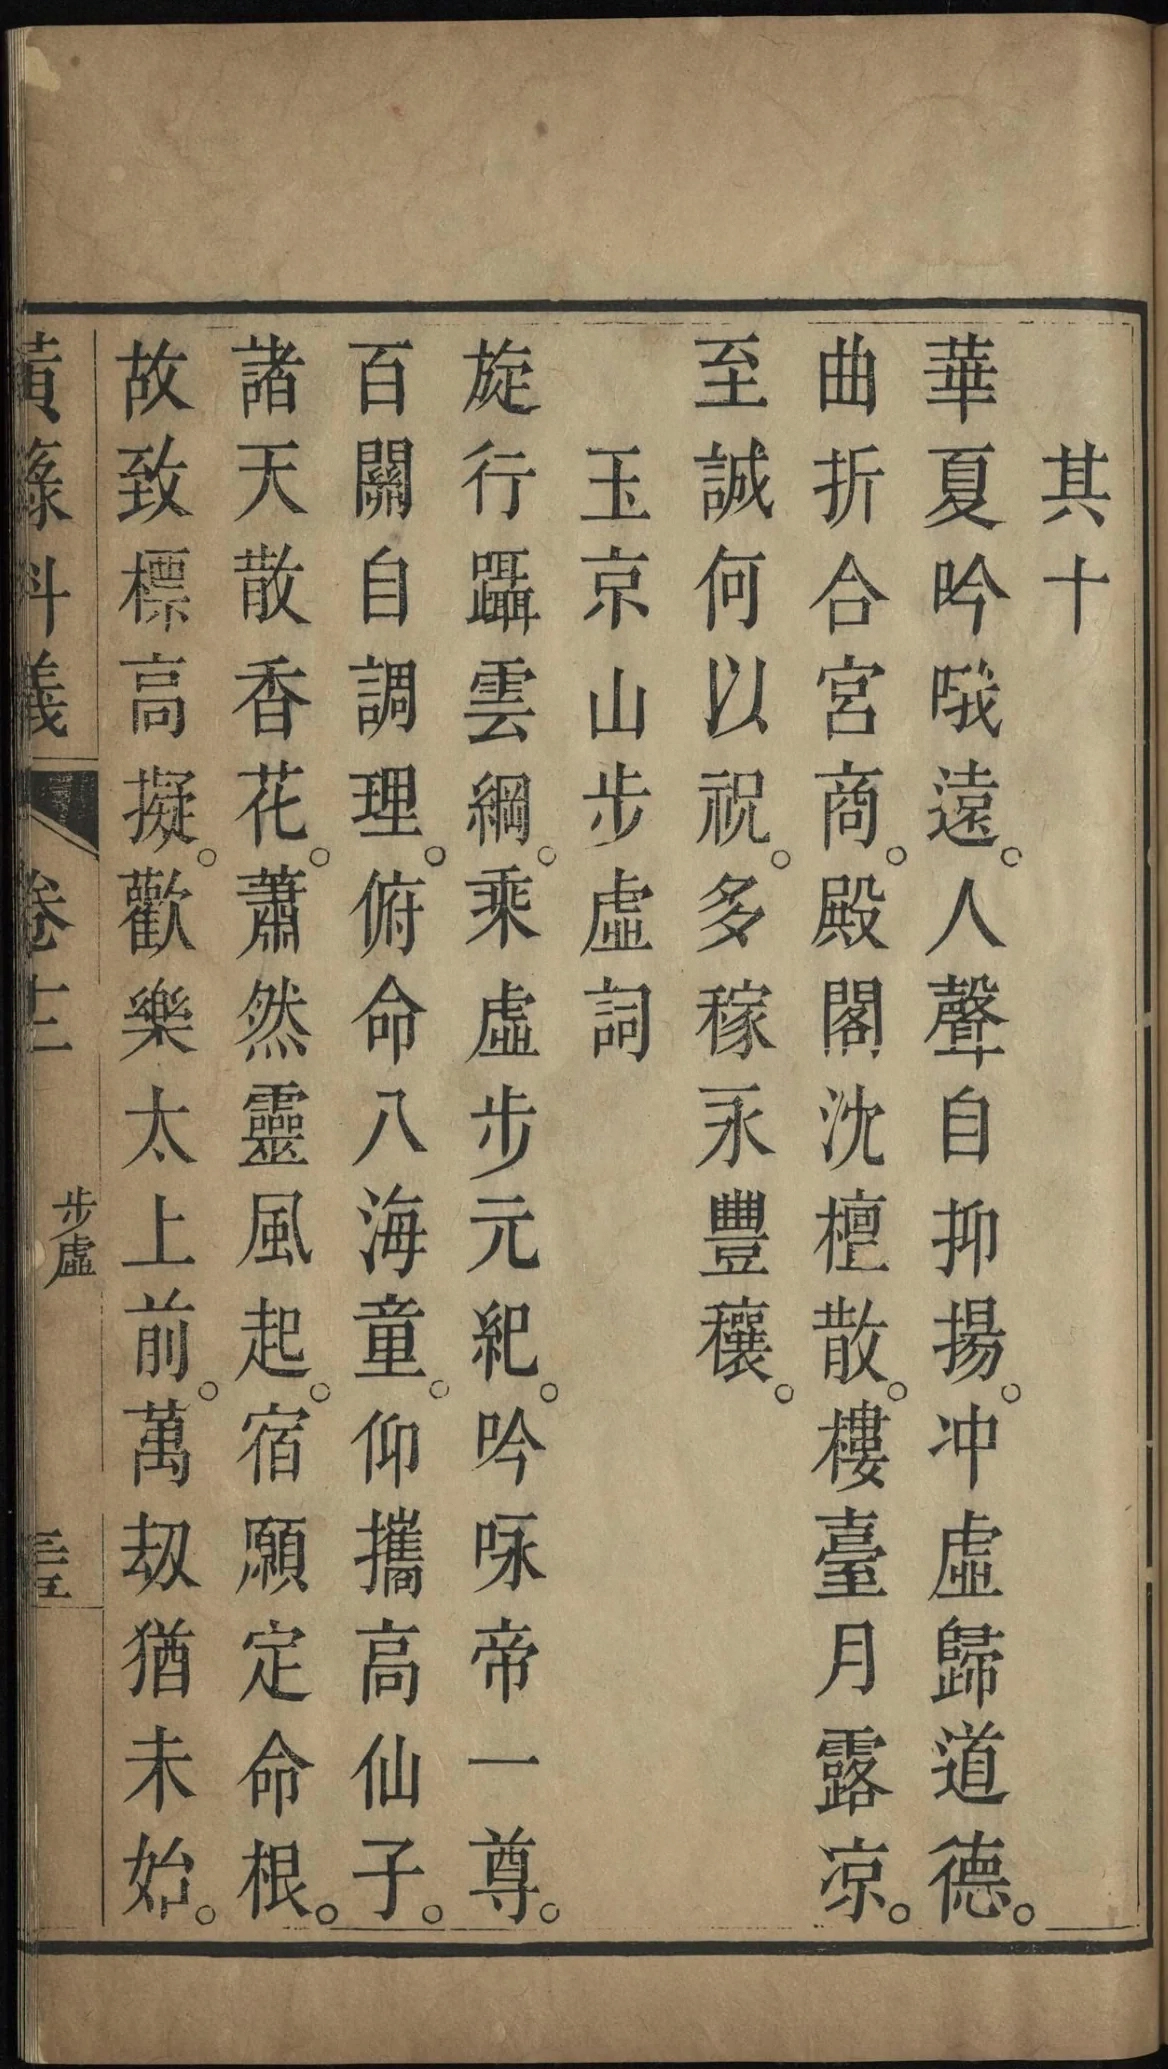 其十
華夏吟哦遠。人聲自抑揚。冲虛歸道德。
曲折合宮商。殿閣沈檀散。樓臺月露凉。
至誠何以祝。多稼永豐穰。
玉京山步虛詞
旋行躡雲綱。乘虛步元紀。吟咏帝一尊。
百關自調理。俯命八海童。仰攜高仙子。
諸天散香花。蕭然靈風起。宿願定命根。
故致標高擬。歡樂太上前。萬刼猶未始。
黃籙科儀
卷十二
步虛